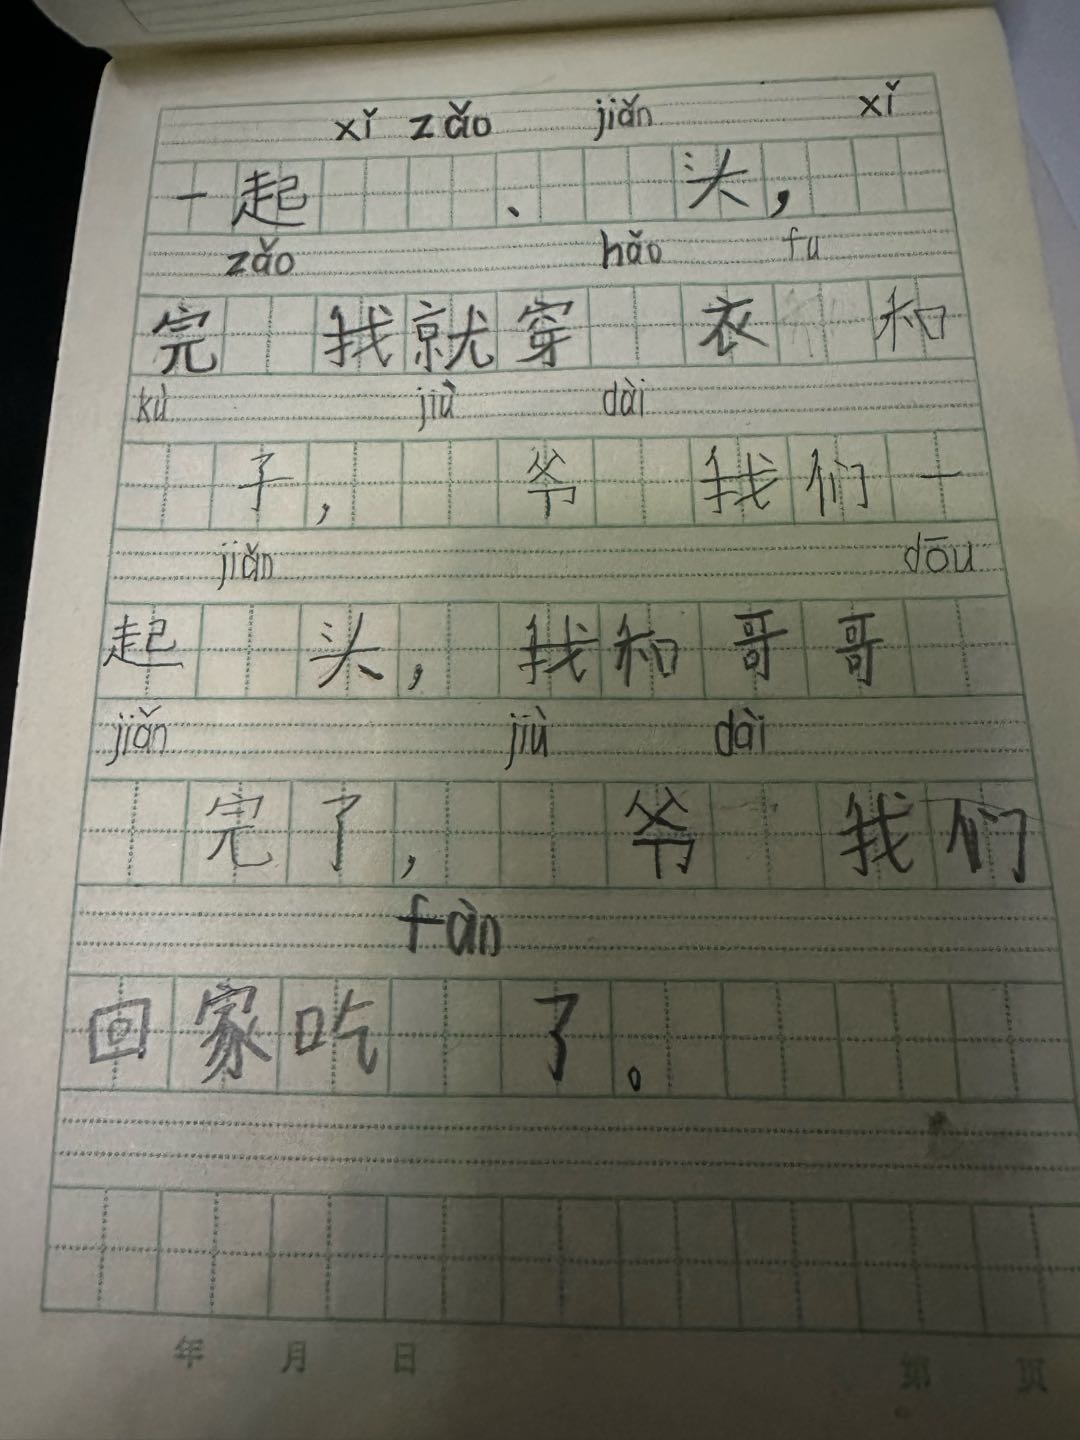 xǐ zǎo jiǎn xǐ
一起、头，
zǎo hǎo fu
完找就穿衣和
kù jiù dài
子，爷我们一
jiǎn dōu
起头，我和哥哥
jiǎn jiù dài
完了，爷我们
fàn
回家吃了。
年 月 日 第 页